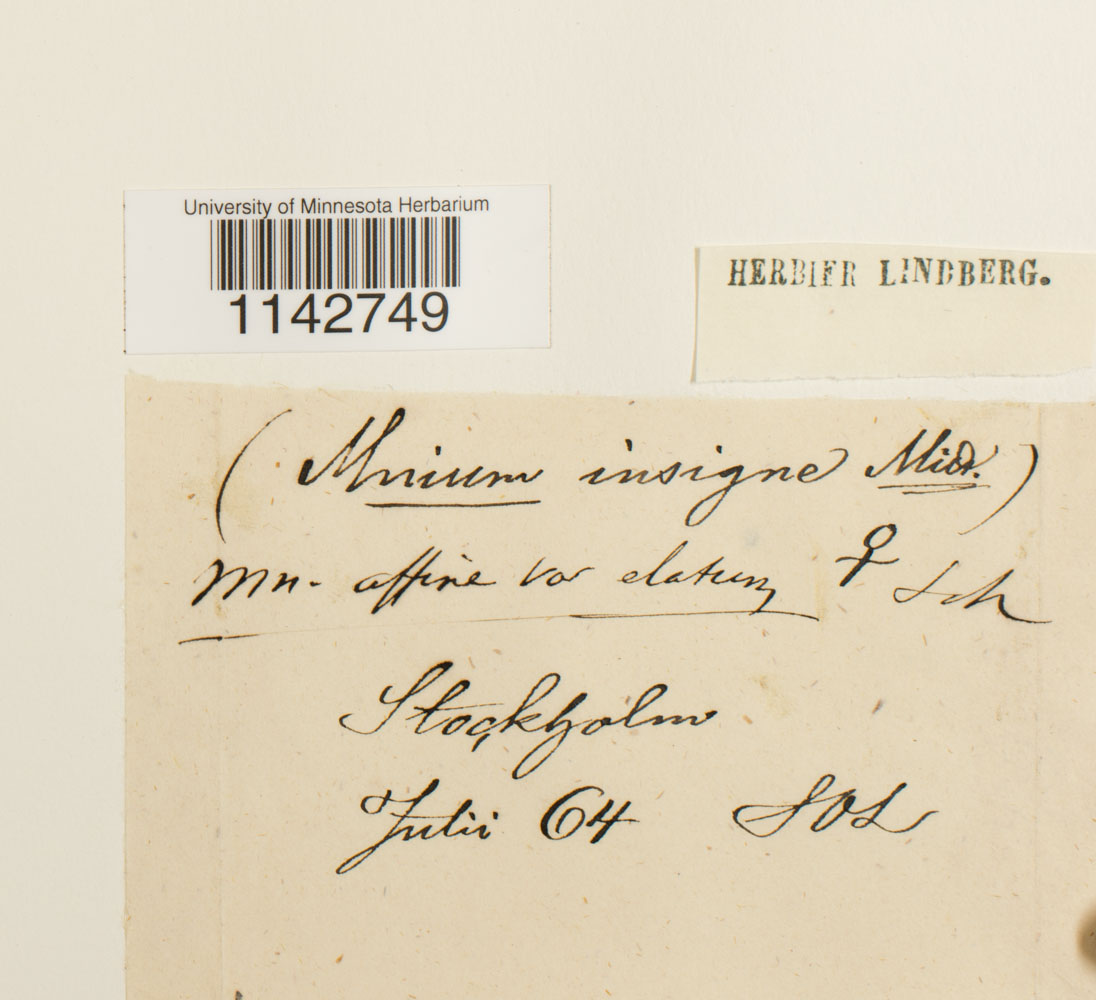 University of Minnesota Herbarium
1142749
HERBIER LINDBERG.
( Mnium insigne Mitt. )
Mn. affine var elatum ♀ Sch
Stockholm
Julii 64 SOL